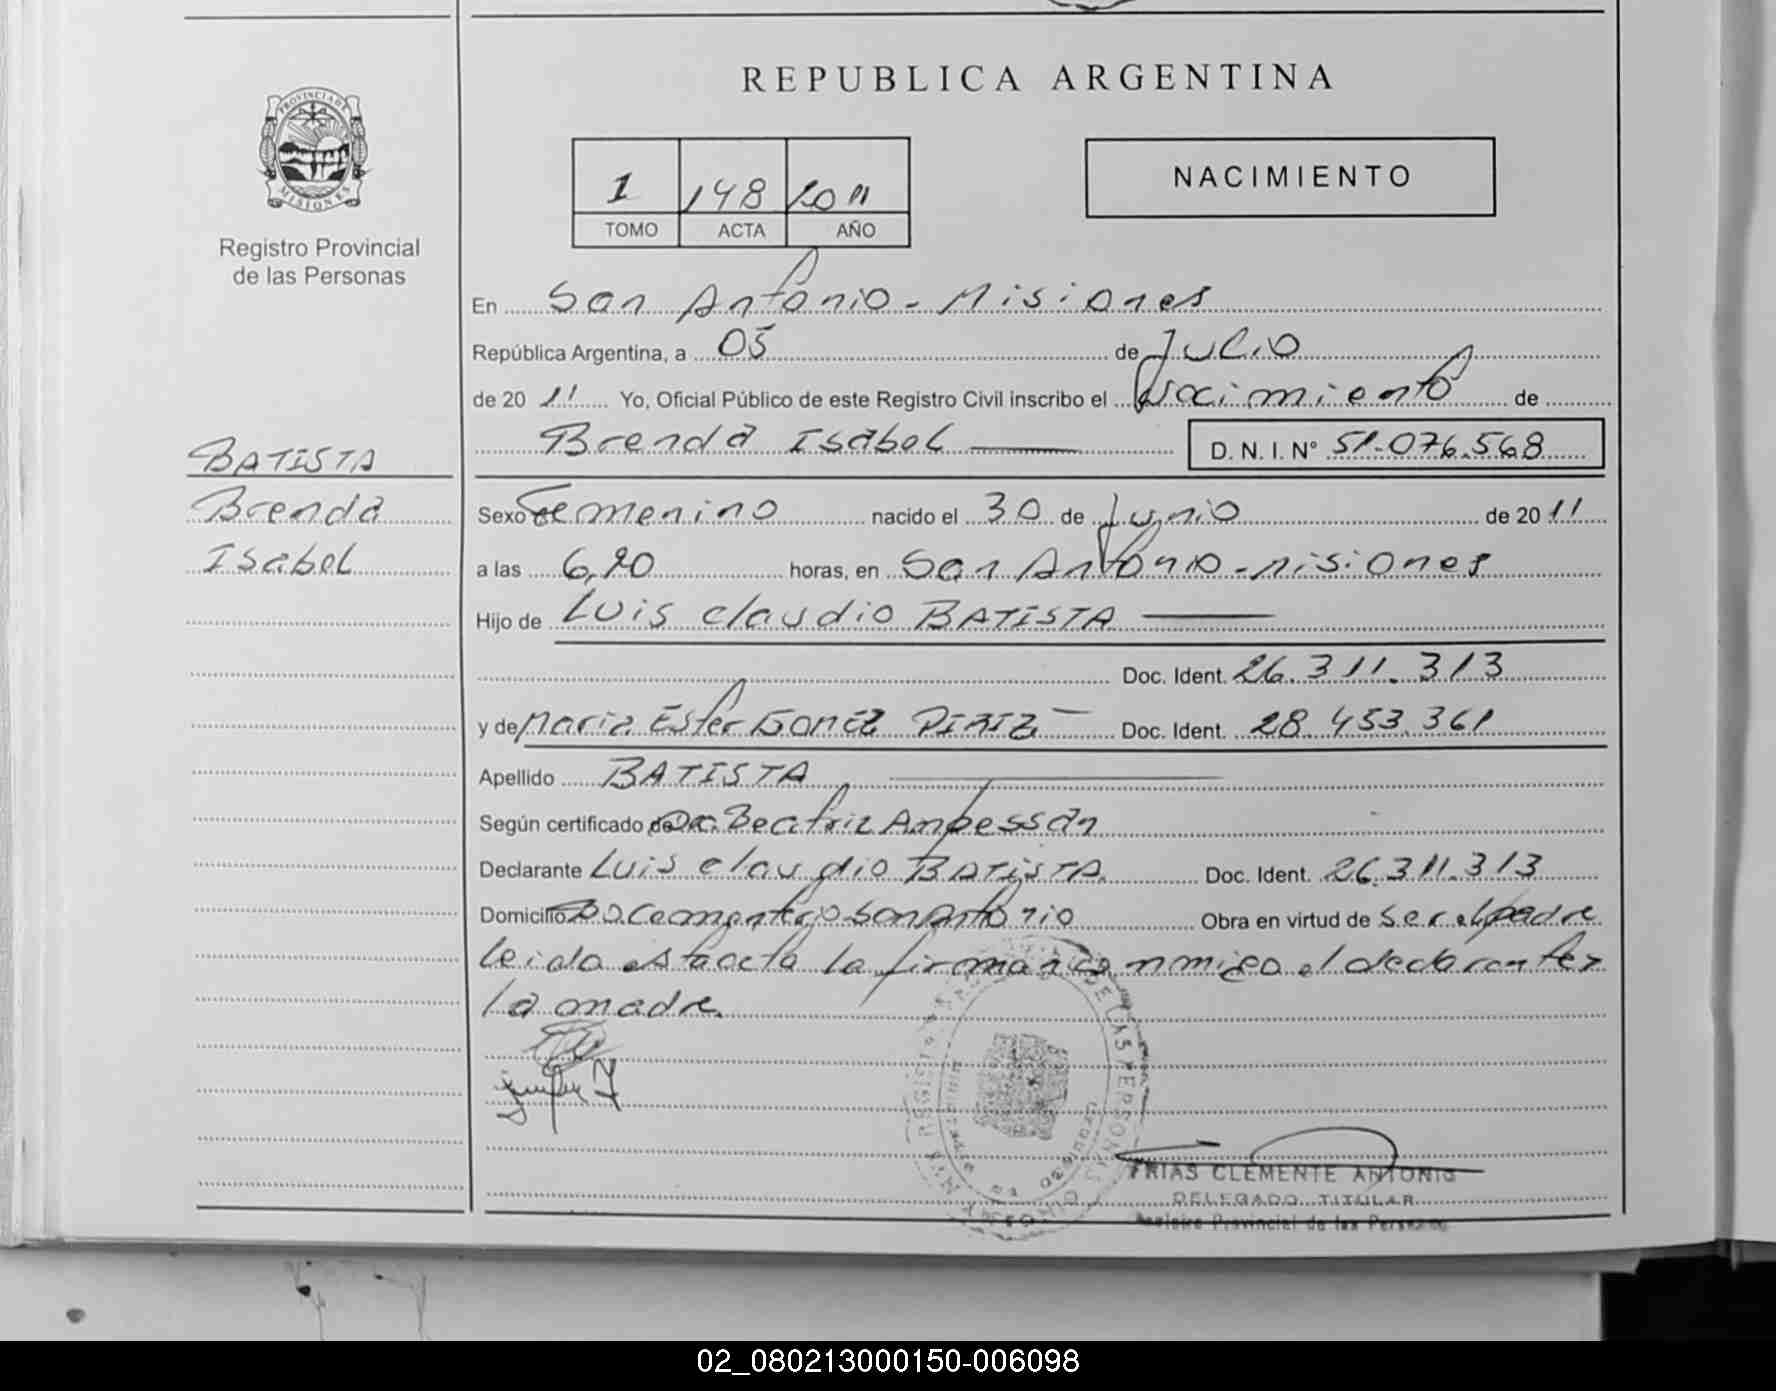 REPUBLICA ARGENTINA
PROVINCIA DE MISIONES
Registro Provincial
de las Personas
1 148 2011
TOMO ACTA AÑO
NACIMIENTO
En San Antonio - Misiones
República Argentina, a 05 de Julio
de 20 11 Yo, Oficial Público de este Registro Civil inscribo el Nacimiento de
Brenda Isabel D. N. I. Nº 51.076.568
BATISTA
Brenda
Isabel
Sexo Femenino nacido el 30 de Junio de 20 11
a las 6,20 horas, en San Antonio - Misiones
Hijo de Luis Claudio BATISTA
Doc. Ident. 26.311.313
y de Maria Ester GOMEZ Doc. Ident. 28.453.361
Apellido BATISTA
Según certificado de Dra. Beatriz
Declarante Luis Claudio BATISTA Doc. Ident. 26.311.313
Domicilio San Antonio Obra en virtud de ser el padre
leida esta acta la firman conmigo el declarante y
la madre.
FRIAS CLEMENTE ANTONIO
DELEGADO TITULAR
Registro Provincial de las Personas
DE LAS PERSONAS
02_080213000150-006098